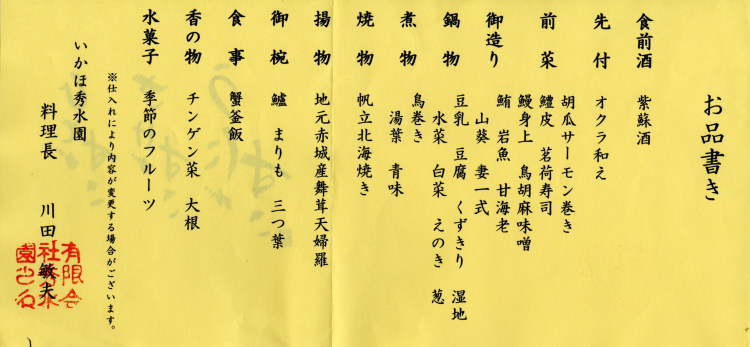 お品書き
食前酒 紫蘇酒
先付 オクラ和え
前菜 胡瓜サーモン巻き
鱧皮 茗荷寿司
鰻身上 鳥胡麻味噌
御造り 鮪 岩魚 甘海老
山葵 妻一式
鍋物 豆乳 豆腐 くずきり 湿地
水菜 白菜 えのき 葱
煮物 鳥巻き
湯葉 青味
焼物 帆立北海焼き
揚物 地元赤城産舞茸天婦羅
御椀 鱸 まりも 三つ葉
食事 蟹釜飯
香の物 チンゲン菜 大根
水菓子 季節のフルーツ
※仕入れにより内容が変更する場合がございます。
いかほ秀水園
料理長 川田 敏夫
有限会
社秀水
園之印